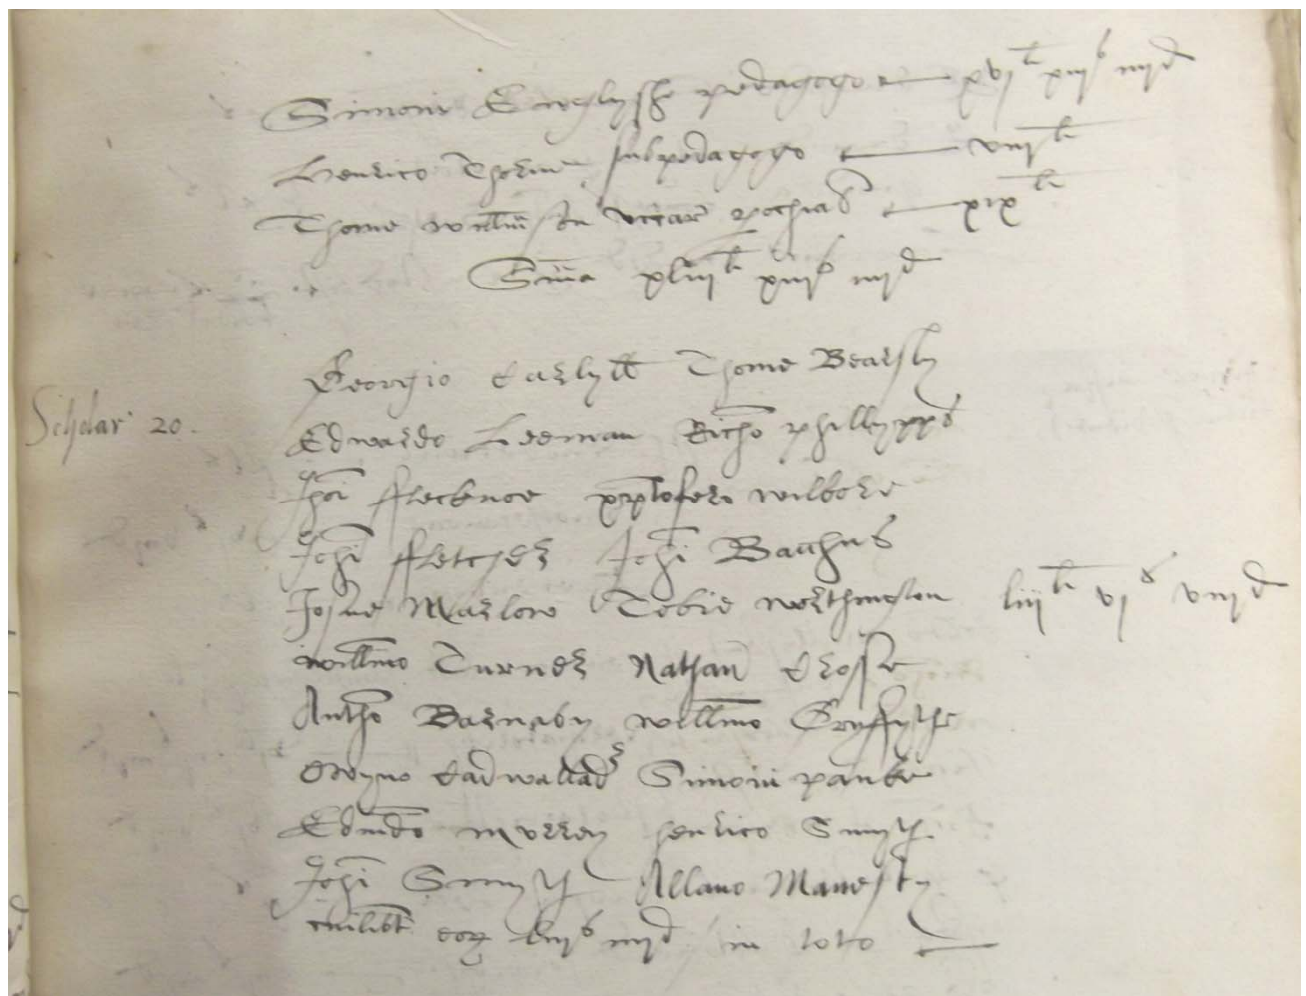 Simoni Englyshe pedagogo xvj li xiij s iiij d
Henrico Thorne subpedagogo viij li
Thome Willmson vicar pochias xix li
Sma xliij li xiij s iiij d
Georgio Carlyll Thome Bearsly
Scholar 20.
Edwardo Leeman Richo Phillypps
Johi Flecknoe xpofero Wilbore
Johi ffletcher Johi Bacchus
Josue Marlow Tobie Worthington liij li vj s viij d
Willmo Turner Nathan Crosse
Antho Barnaby Willmo Gryffythe
Oweyno Cadwallad Simoni panke
Edmdo Murrey Henrico Smyth
Johi Smyth Allano Manesty
cuilibt eor liij s iiij d in toto